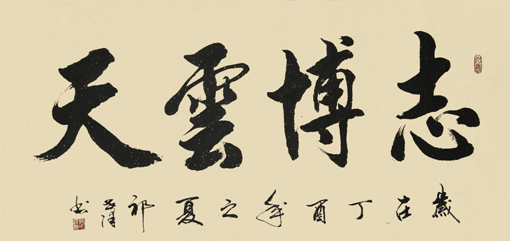 志博雲天
歲在丁酉年之夏祁隆書